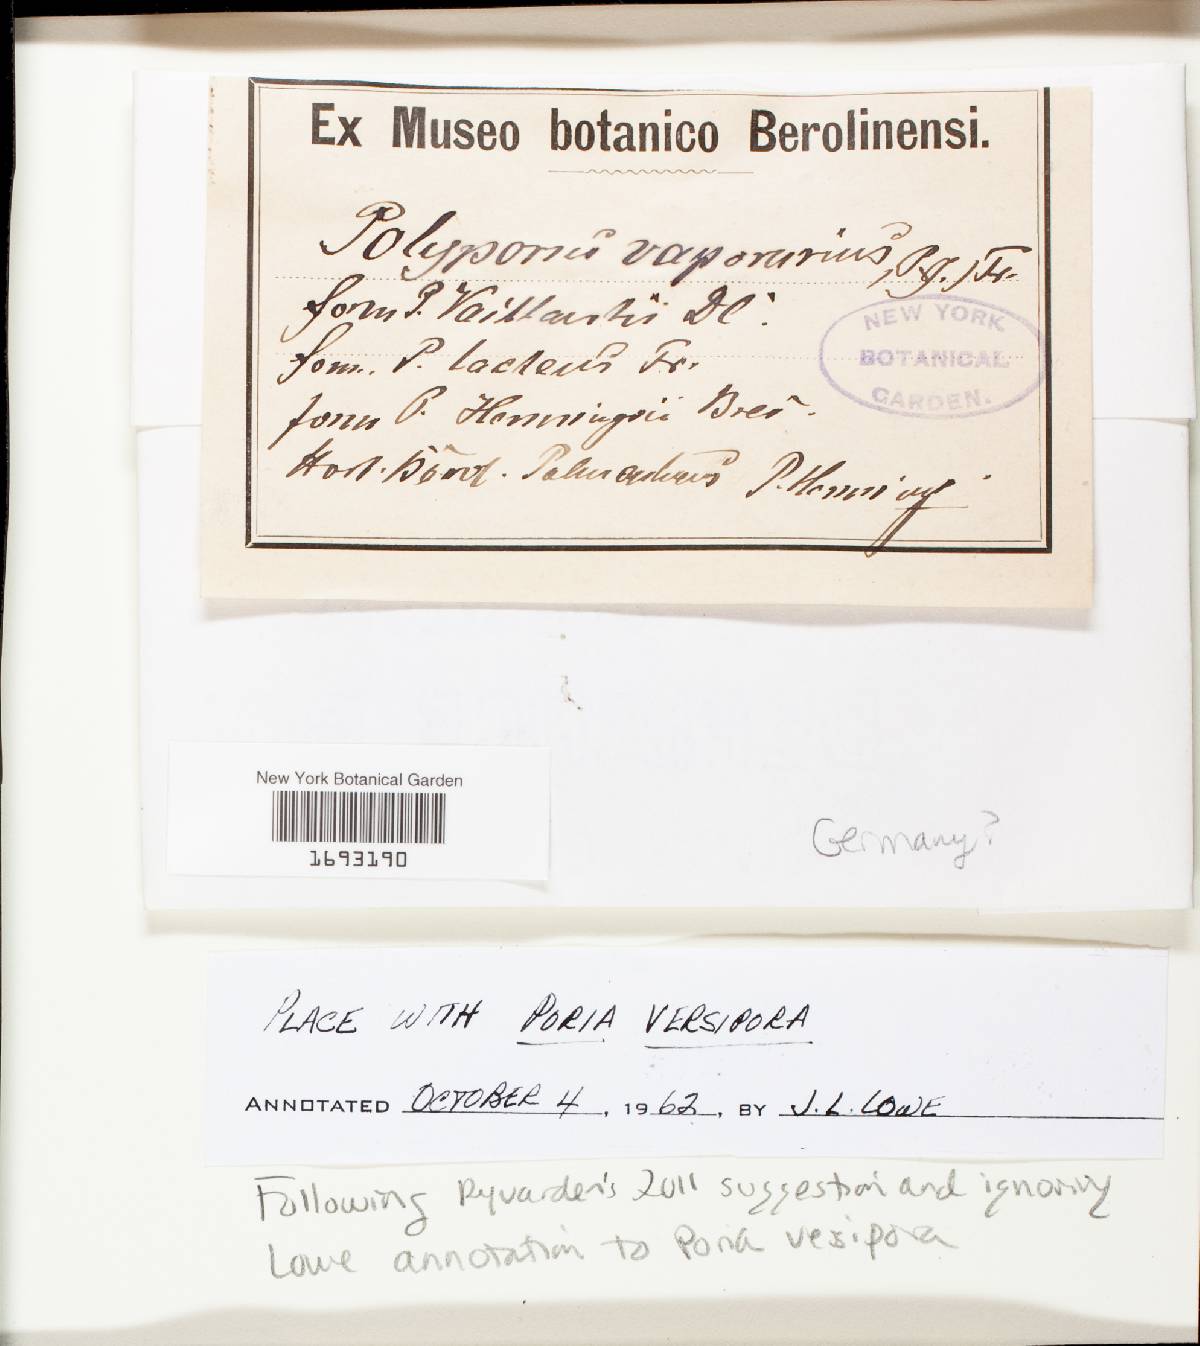 Ex Museo botanico Berolinensi.
Polyporus vaporarius (Pg.) Fr.
form P. Vaillantii DC.
form. P. lacteus Fr.
form P. Henningsii Bres.
Hort. Palmenhaus P. Henning
NEW YORK
BOTANICAL
GARDEN.
New York Botanical Garden
1693190
Germany?
PLACE WITH PORIA VERSIPORA
ANNOTATED OCTOBER 4, 1962, BY J. L. LOWE
Following Ryvarden's 2011 suggestion and ignoring
Lowe annotation to Poria vesipora